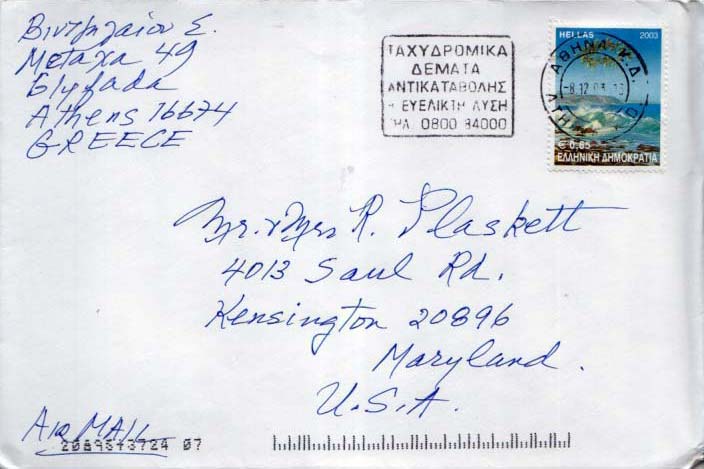 Βιντζηλαίου Σ.
Μεταχα 49
Glyfada
Athens 16674
GREECE
ΤΑΧΥΔΡΟΜΙΚΑ
ΔΕΜΑΤΑ
ΑΝΤΙΚΑΤΑΒΟΛΗΣ
Η ΕΥΕΛΙΚΤΗ ΛΥΣΗ
ΤΗΛ. 0800 84000
HELLAS 2003
ΑΘΗΝΑ Κ.Δ.
-8.12.03
€ 0,65
ΕΛΛΗΝΙΚΗ ΔΗΜΟΚΡΑΤΙΑ
Mr. & Mrs R. Plaskett
4013 Saul Rd.
Kensington 20896
Maryland.
U.S.A.
AIR MAIL
2089543724 07